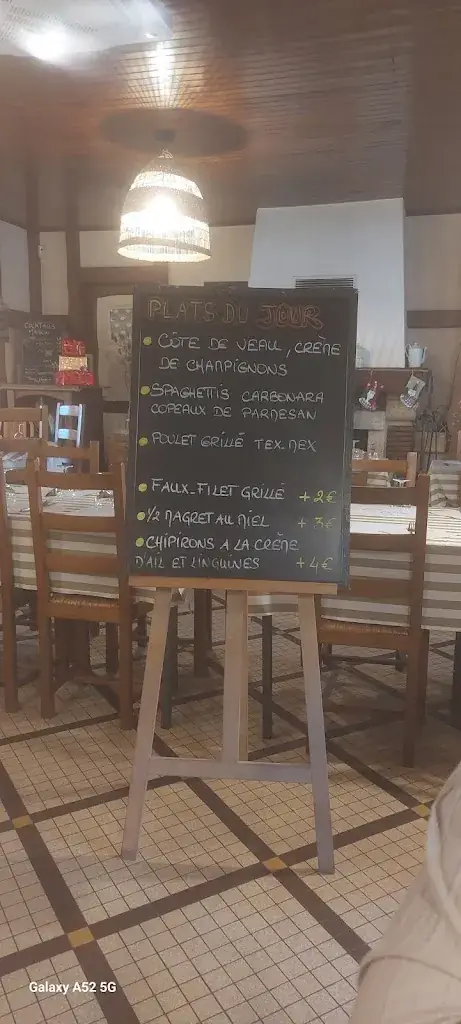 PLATS DU JOUR
CÔTE DE VEAU, CRÈME
DE CHAMPIGNONS
SPAGHETTIS CARBONARA
COPEAUX DE PARMESAN
POULET GRILLÉ TEX-MEX
FAUX-FILET GRILLÉ +2€
1/2 MAGRET AU MIEL +3€
CHIPIRONS A LA CRÈME
D'AIL ET LINGUINES +4€
COCKTAILS
Galaxy A52 5G